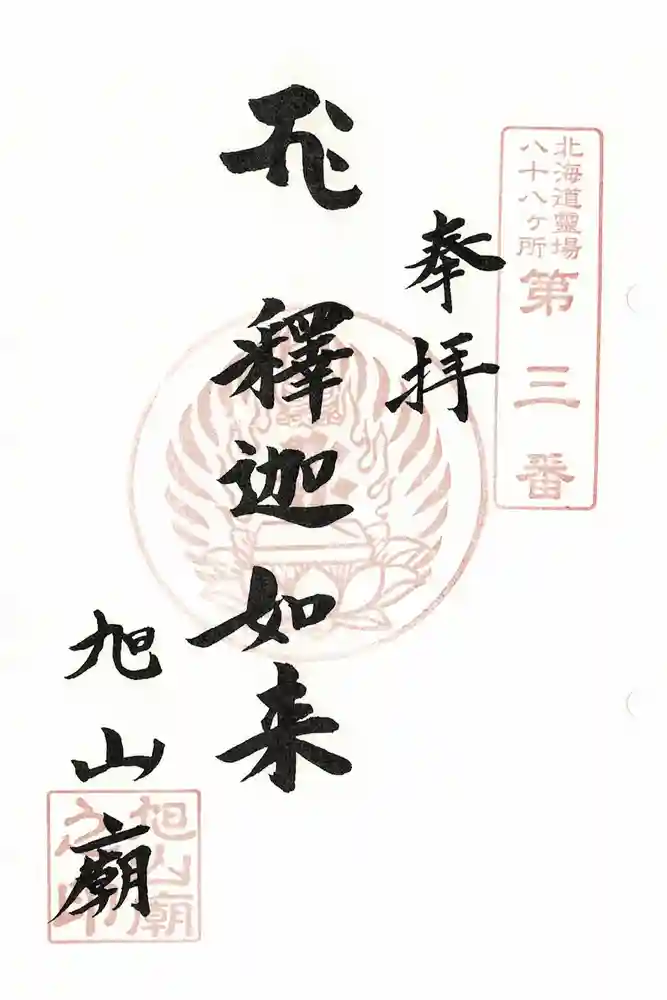 北海道霊場
八十八ケ所
第三番
奉拝
釋迦如来
旭山廟
旭山廟
之印